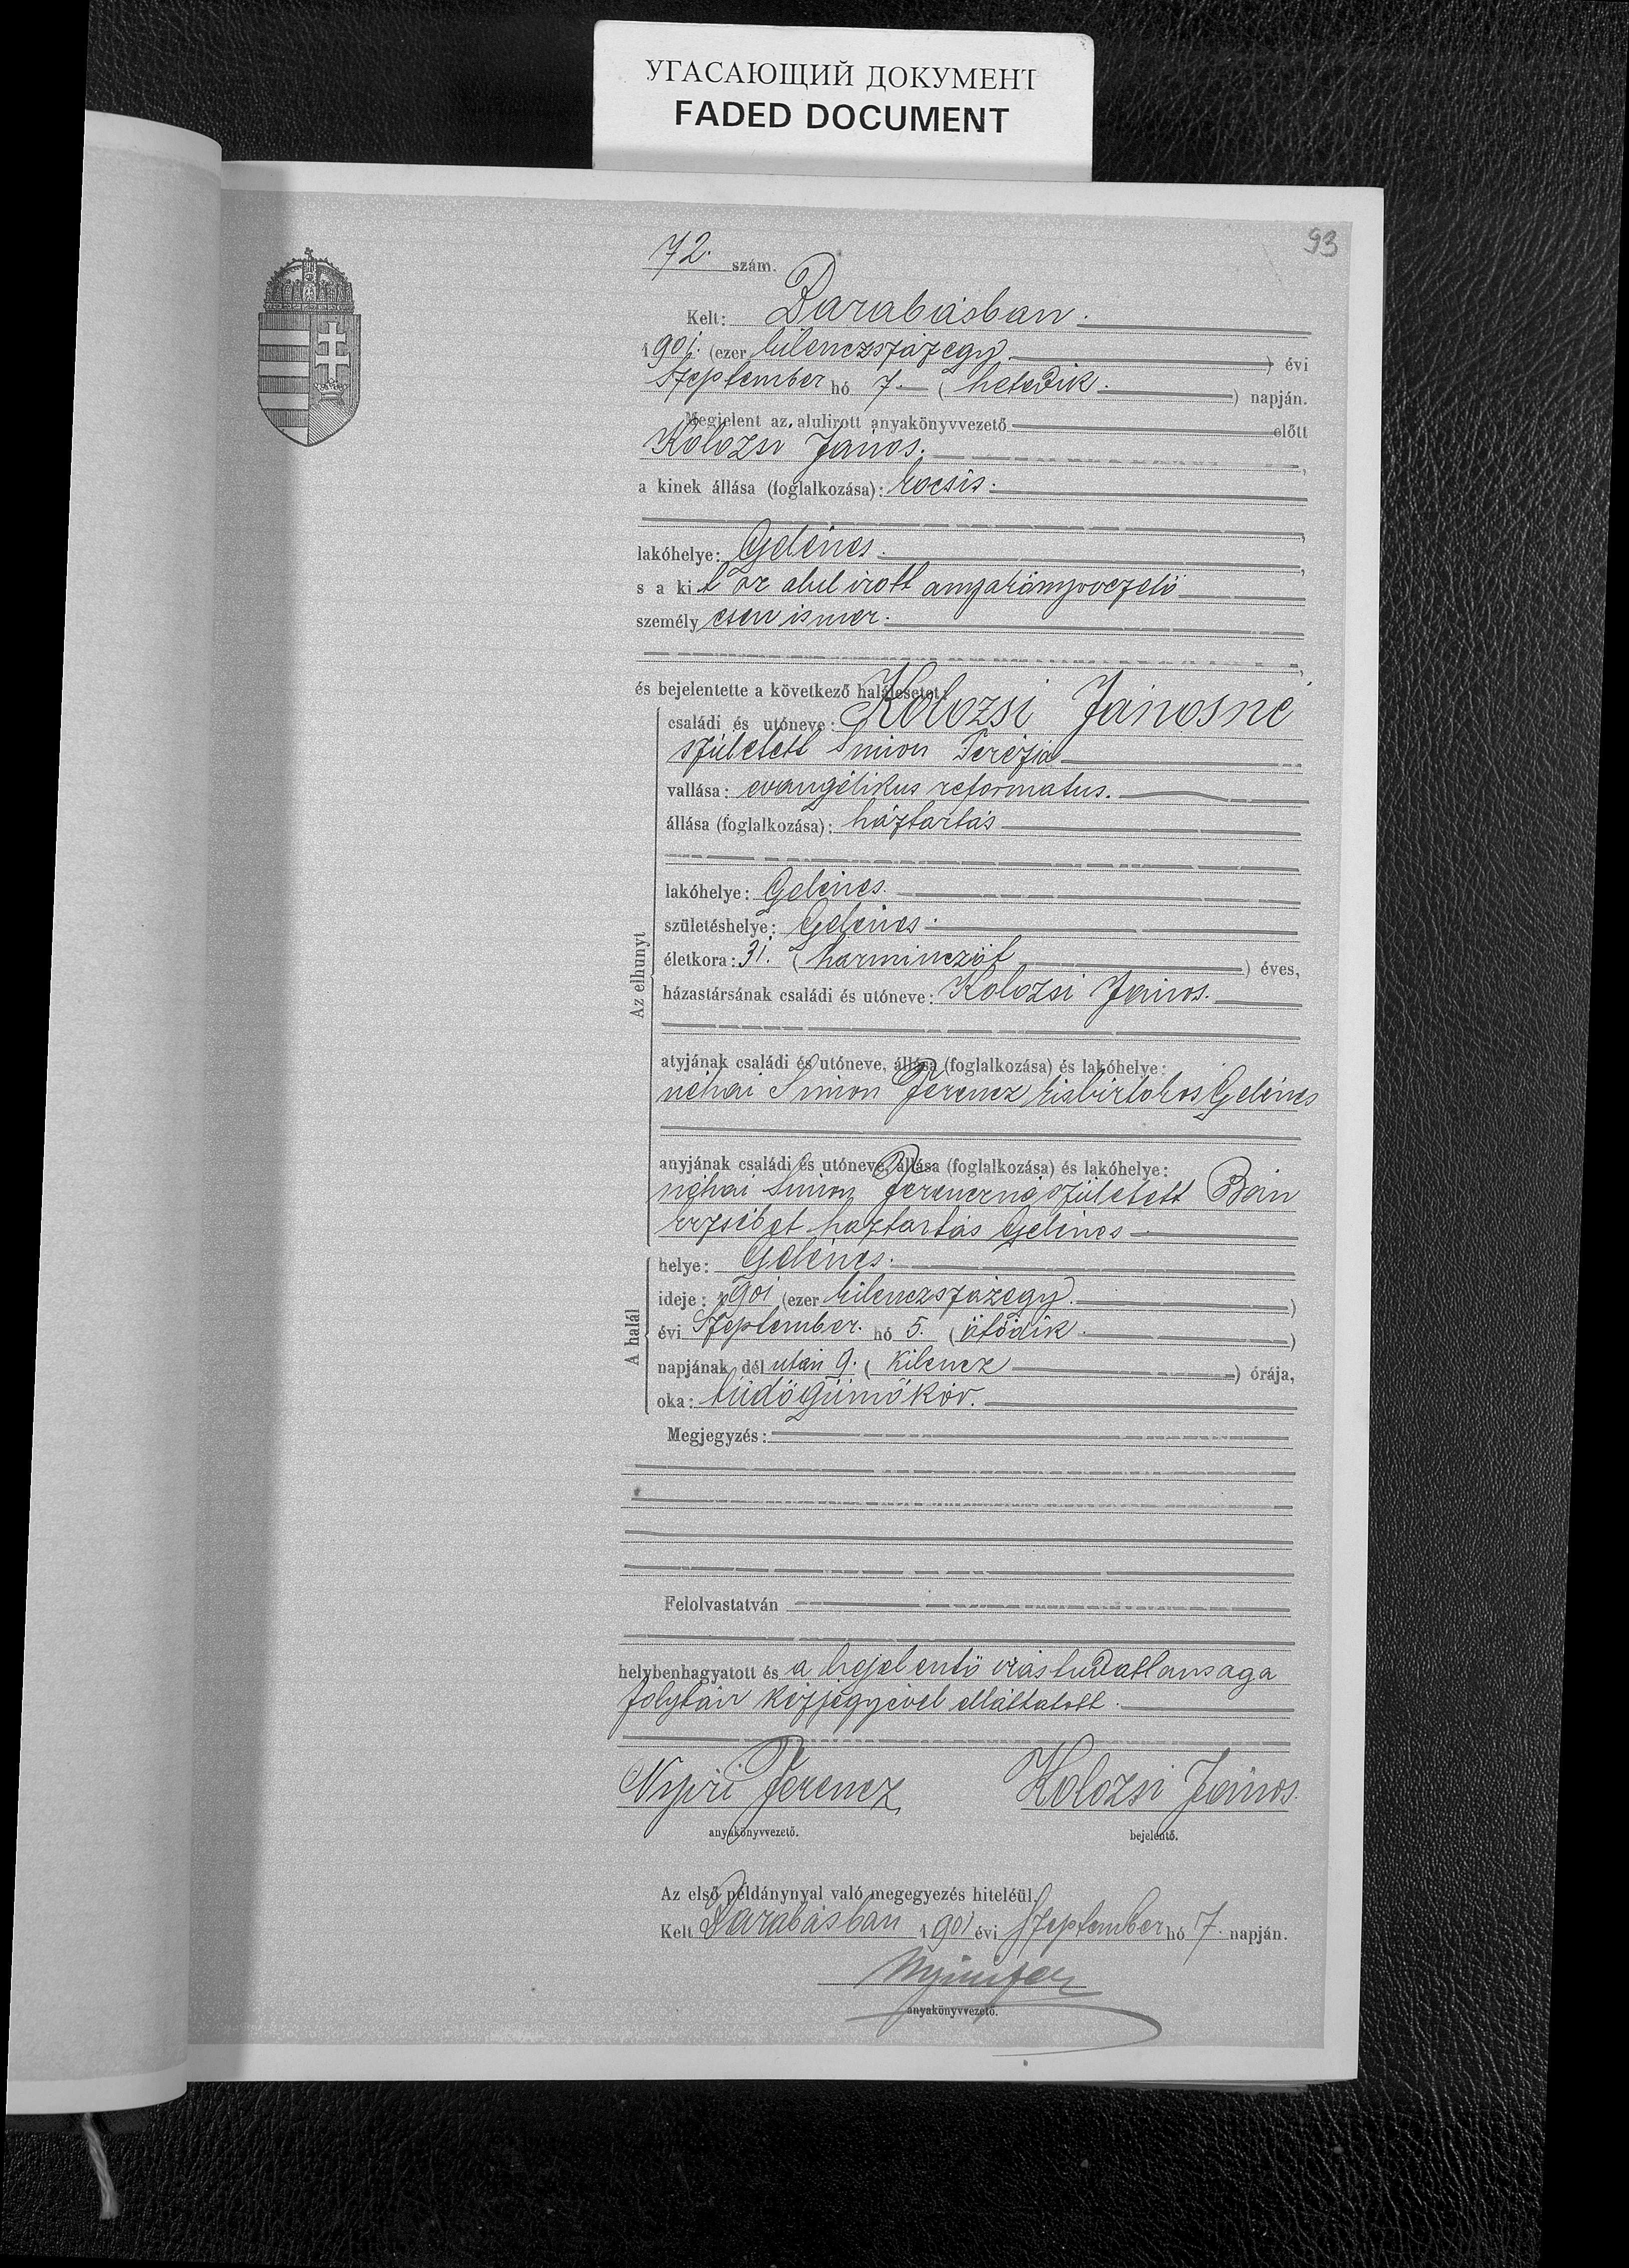 УГАСАЮЩИЙ ДОКУМЕНТ
FADED DOCUMENT
93
72. szám.
Kelt: Barabásban.
1901. (ezer kilenczszázegy) évi
Szeptember hó 7. (hetedik.) napján.
Megjelent az alulirott anyakönyvvezető előtt
Kolozsi János.,
a kinek állása (foglalkozása): kocsis.
lakóhelye: Gelénes.,
s a kit az alul irott anyakönyvvezető
személyesen ismer.
és bejelentette a következő halálesetet:
Az elhunyt
családi és utóneve: Kolozsi Jánosné
született Simon Terézia
vallása: evangélikus reformatus.
állása (foglalkozása): háztartás
lakóhelye: Gelénes.
születéshelye: Gelénes.
életkora: 3 (harminczöt) éves,
házastársának családi és utóneve: Kolozsi János.
atyjának családi és utóneve, állása (foglalkozása) és lakóhelye:
néhai Simon Ferencz kisbirtokos Gelénes
anyjának családi és utóneve, állása (foglalkozása) és lakóhelye:
néhai Simon Ferenczné született Bán
Erzsébet háztartás Gelénes
A halál
helye: Gelénes.
ideje: 1901 (ezer kilenczszázegy.)
évi Szeptember. hó 5. (ötödik.)
napjának dél után 9. (kilencz) órája,
oka: tüdőgümőkór.
Megjegyzés:
Felolvastatván
helybenhagyatott és a bejelentő irástudatlansaga
folytán kézjegyével elláttatott.
Nyiri Ferencz
Kolozsi János.
anyakönyvvezető.
bejelentő.
Az első példánynyal való megegyezés hiteléül.
Kelt Barabásban 1901 évi Szeptember hó 7. napján.
anyakönyvvezető.